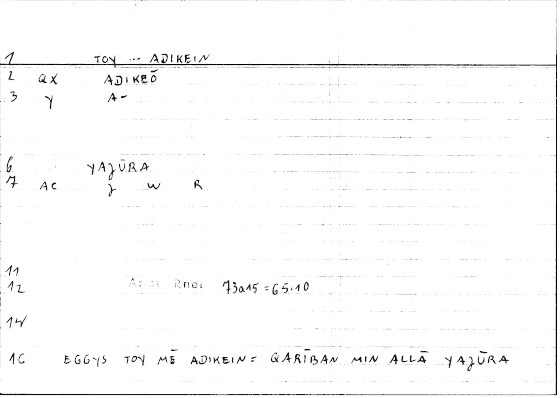 1 TOY ... ADIKEIN
2 QX ADIKEŌ
3 Y A-
6 YAJŪRA
7 AC J W R
11
12 Arist Rhet 73a15 = 65.10
14
16 EGGYS TOY MĒ ADIKEIN = QARĪBAN MIN ALLĀ YAJŪRA